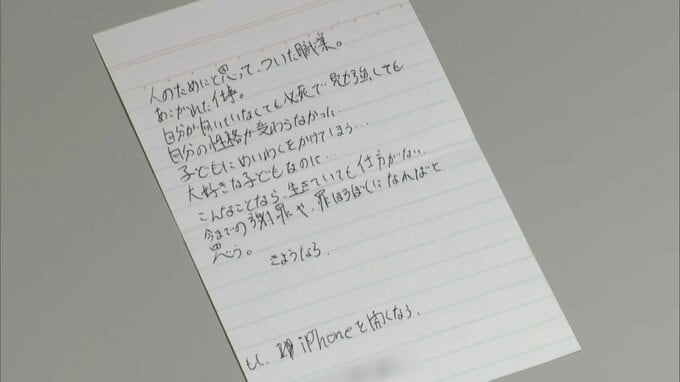 人のためにと思って、ついた職業。
あこがれた仕事。
自分が向いていなくても必死で勉強しても
自分の性格が変わらなかった…
子どもにめいわくをかけてしまう…
大好きな子どもなのに…
こんなことなら、生きていても仕方がない。
今までの謝罪や、罪ほろぼしになればと
思う。
さようなら。
もし iPhoneを開くなら、